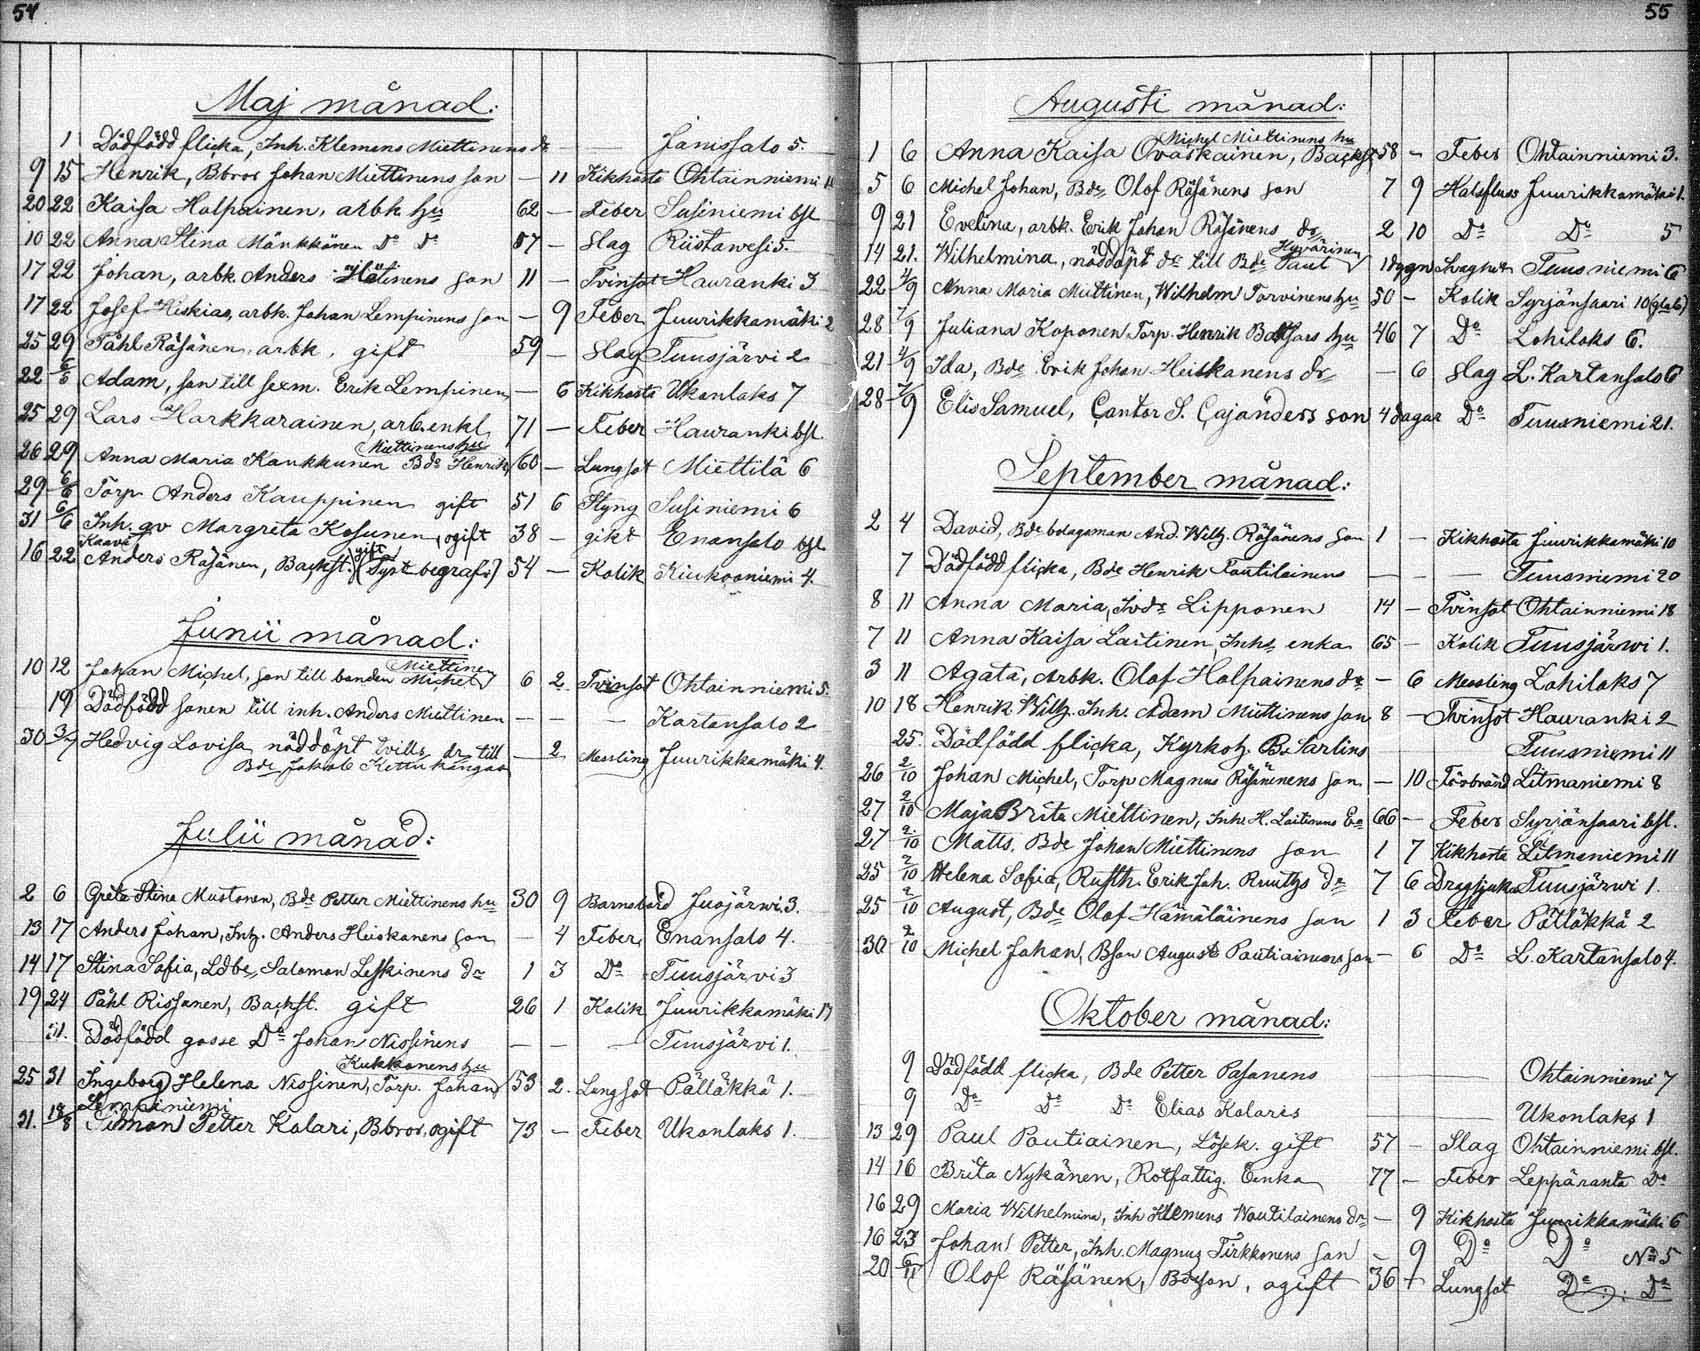 54
Maj månad:
1 Dödfödd flicka, Inh. Klemens Miettinens dr — — Jänissalo 5.
9 15 Henrik, Bbror Johan Miettinens son — 11 Kikhosta Ohtainniemi 11
20 22 Kaisa Holpainen, arbk hu 62 — Feber Susiniemi bfl
10 22 Anna Stina Mänkkönen Do Do 57 — Slag Riistawesi 5.
17 22 Johan, arbk. Anders Hätinens son 11 — Tvinsot Hauranki 3
17 22 Josef Hiskias, arbk. Johan Lempinens son — 9 Feber Juurikkamäki 2
25 29 Påhl Räsänen, arbk. gift 59 — Slag Tuusjärvi 2
22 6/5 Adam, son till sexm. Erik Lempinen — 6 Kikhosta Ukonlaks 7
25 29 Lars Harkkarainen, arb. enkl. 71 — Feber Hauranki bfl.
Miettinens hu
26 29 Anna Maria Kaukkunen Bde Henrik 60 — Lungsot Miettilä 6
29 6/6 Torp Anders Kauppinen gift 51 6 Styng Susiniemi 6
31 6/6 Inh. qv Margreta Kosunen, ogift 38 — gikt Enansalo bfl
Kaavi gift
16 22 Anders Räsänen, Backst. (Tyst begrafs) 54 — Kolik Kiukooniemi 4.
Junii månad:
Miettinen
10 12 Johan Michel, son till bonden Michel 6 2 Tvinsot Ohtainniemi 5.
19 Dödfödd sonen till inh. Anders Miettinen — — — Kartansalo 2
30 3/7 Hedvig Lovisa, nöddöpt tvills. dr till — 2 Messling Juurikkamäki 4.
Bde Jakob Kettukangas
Julii månad:
2 6 Greta Stina Mustonen, Bde Petter Miettinens hu 30 9 Barnsbörd Juojärwi 3.
13 17 Anders Johan, Inh. Anders Heiskanens son — 4 Feber Enansalo 4.
14 17 Stina Sofia, Ldbe Salomon Leskinens dr 1 3 Do Tuusjärvi 3
19 24 Påhl Rissanen, Backst. gift 26 1 Kolik Juurikkamäki 17
31. Dödfödd gosse Do Johan Nissinens — — — Tuusjärvi 1.
Kukkonens hu
25 31 Ingeborg Helena Nissinen, Torp. Johan 53 2. Lungsot Pölläkkä 1.
Lempiniemi
31. 18/8 Simon Petter Kolari, Bbror, ogift 73 — Feber Ukonlaks 1.
55
Augusti månad:
Michel Miettinens hu
1 6 Anna Kaisa Ovaskainen, Backst 58 — Feber Ohtainniemi 3.
5 6 Michel Johan, Bde Olof Räsänens son 7 9 Halsfluss Juurikkamäki 1.
9 21 Evelina, arbk. Erik Johan Räsänens dr 2 10 Do Do 5
Hyvärinen
14 21. Wilhelmina, nöddöpt dr till Bde Paul 1 dygn Svaghet Tuusniemi 6
22 4/9 Anna Maria Miettinen, Wilhelm Torvinens hu 50 — Kolik Syrjänsaari 10
28 7/9 Juliana Koponen Torp. Henrik hu 46 7 Do Lohilaks 6.
21 4/9 Ida, Bde Erik Johan Heiskanens dr — 6 Slag L. Kartansalo 6
28 7/9 Elis Samuel, Cantor S. Cajanders son 4 dagar Do Tuusniemi 21.
September månad:
2 4 David, Bde bolagsman And. Wilh. Räsänens son 1 — Kikhosta Juurikkamäki 10
7 Dödfödd flicka, Bde Henrik Tautilainens — — — Tuusniemi 20
8 11 Anna Maria, Lipponen 14 — Tvinsot Ohtainniemi 18
7 11 Anna Kaisa Laitinen, Inhs enka 65 — Kolik Tuusjärwi 1.
3 11 Agata, Arbk. Olof Holpainens dr — 6 Messling Lohilaks 7
10 18 Henrik Wilh. Inh. Adam Miettinens son 8 — Tvinsot Hauranki 2
25. Dödfödd flicka, Kyrkoh. B. Sarlins Tuusniemi 11
26 2/10 Johan Michel, Torp Magnus Räsänens son — 10 Förbränd Litmaniemi 8
27 2/10 Maja Brita Miettinen, Inh. H. Laitinens Ea 66 — Feber Syrjänsaari bfl.
27 2/10 Matts, Bde Johan Miettinens son 1 7 Kikhosta Litmaniemi 11
25 2/10 Helena Sofia, Rusth. Erik Joh. Ruuths dr 7 6 Dragsjuka Tuusjärwi 1.
25 2/10 August, Bde Olof Hämäläinens son 1 3 Feber Pölläkkä 2
30 2/10 Michel Johan, Bson August Pautiainens son — 6 Do L. Kartansalo 4.
Oktober månad:
9 Dödfödd flicka, Bde Petter Pasanens Ohtainniemi 7
9 Do Do Do Elias Kolaris Ukonlaks 1
13 29 Paul Poutiainen, Lösk. gift 57 — Slag Ohtainniemi bfl.
14 16 Brita Nykänen, Rotfattig. Enka 77 — Feber Leppäranta Do
16 29 Maria Wilhelmina, Inh Klemens Woutilainens dr — 9 Kikhosta Juurikkamäki 6
16 23 Johan Petter, Inh. Magnus Tirkkonens son — 9 Do Do No 5
20 6/11 Olof Räsänen, Bdeson, ogift 36 + Lungsot Do Do